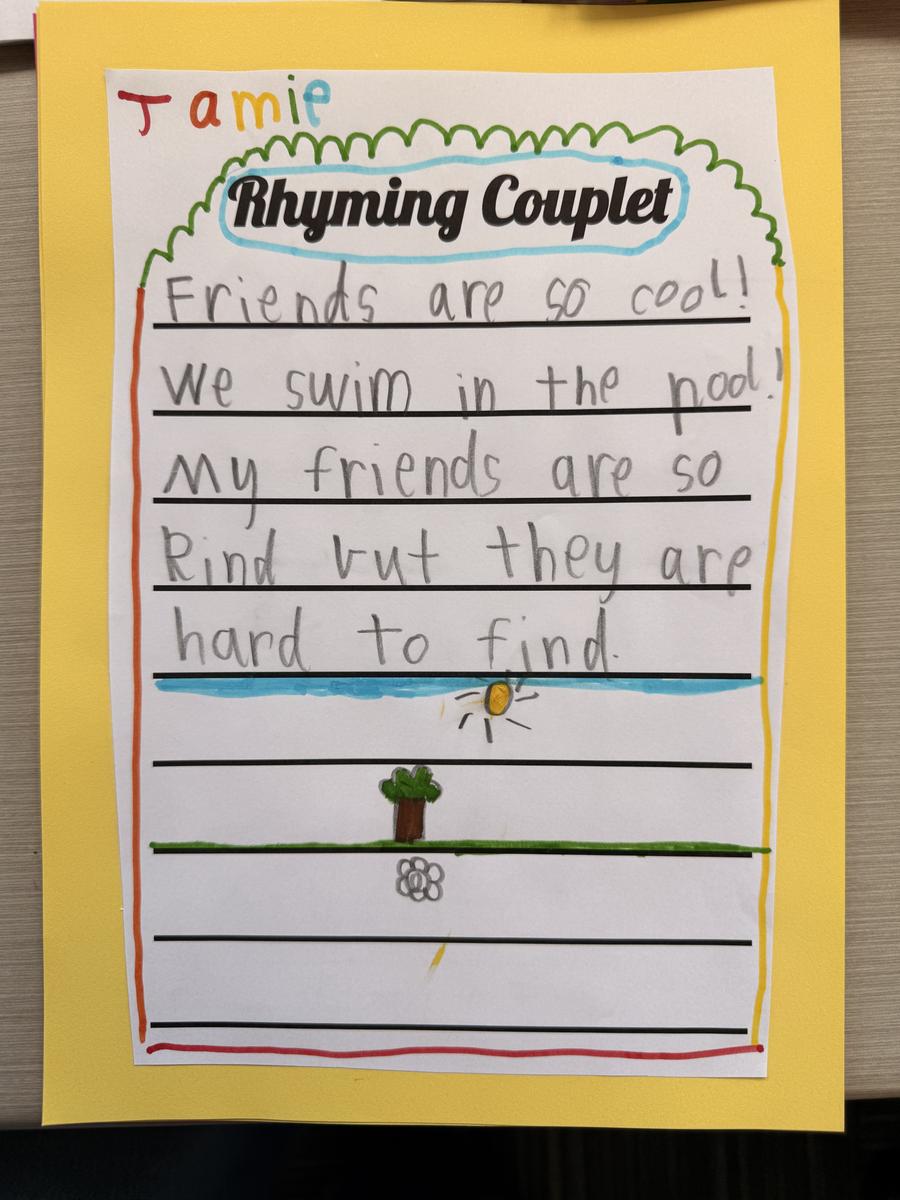 Jamie
Rhyming Couplet
Friends are so cool!
We swim in the pool!
My friends are so
kind but they are
hard to find.